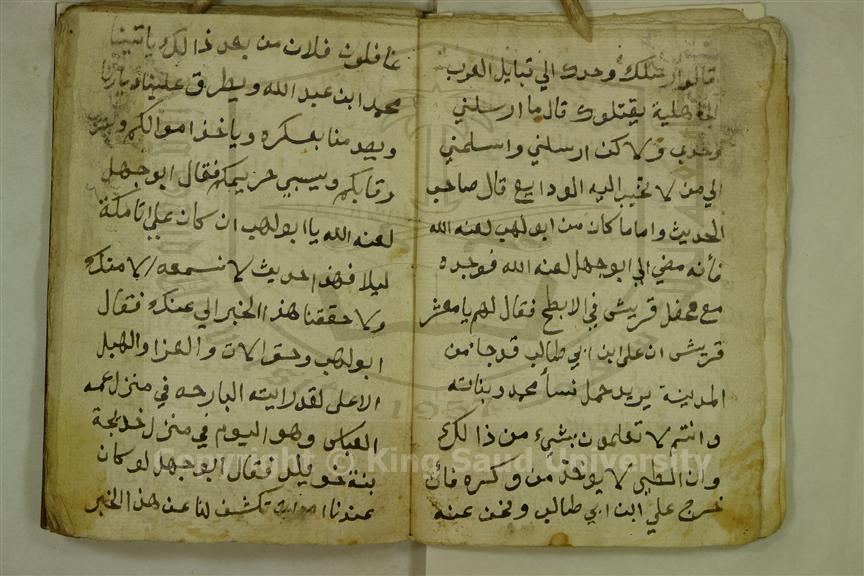 قالوا ارسلك وحدك الي قبايل العرب
الجاهلية يقتلوك قال ما ارسلني
وحدي ولاكن ارسلني واسلمني
الي من لا تخيب اليه الودايع قال صاحب
الحديث واماما كان من ابو لهب لعنه الله
فأنه مضي الي ابو جهل لعنه الله فوجده
مع محفل قريش في الابطح فقال لهم يا معشر
قريش ان علي ابن ابي طالب قد جا من
المدينة يريد حمل نسأ محمد وبناته
وانتم لا تعلمون بشيء من ذالك
وان الطير لا يوخذ من وكره فأن
خرج علي ابن ابي طالب ونحن عنه
غافلون فلان من بعد ذالك ياتينا
محمد ابن عبد الله ويطرق علينا ديارنا
ويصدمنا بعسكره وياخذ اموالكم
رقابكم ويسبي حريمكم فقال ابو جهل
لعنه الله يا ابو لهب ان كان علي اتا مكة
ليلا فهذا حديث لا نسمعه الا منك
ولا حققنا هذا الخبر الي عندك فقال
ابو لهب وحق الات والعزا والهبل
الاعلى لقد رايته البارحه في منزل عمه
العباس وهو اليوم في منزل خديجة
بنة خويلد فقال ابو جهل لو كان
عندنا تكشف لنا عن هذا الخبر
Copyright © King Saud University
1957